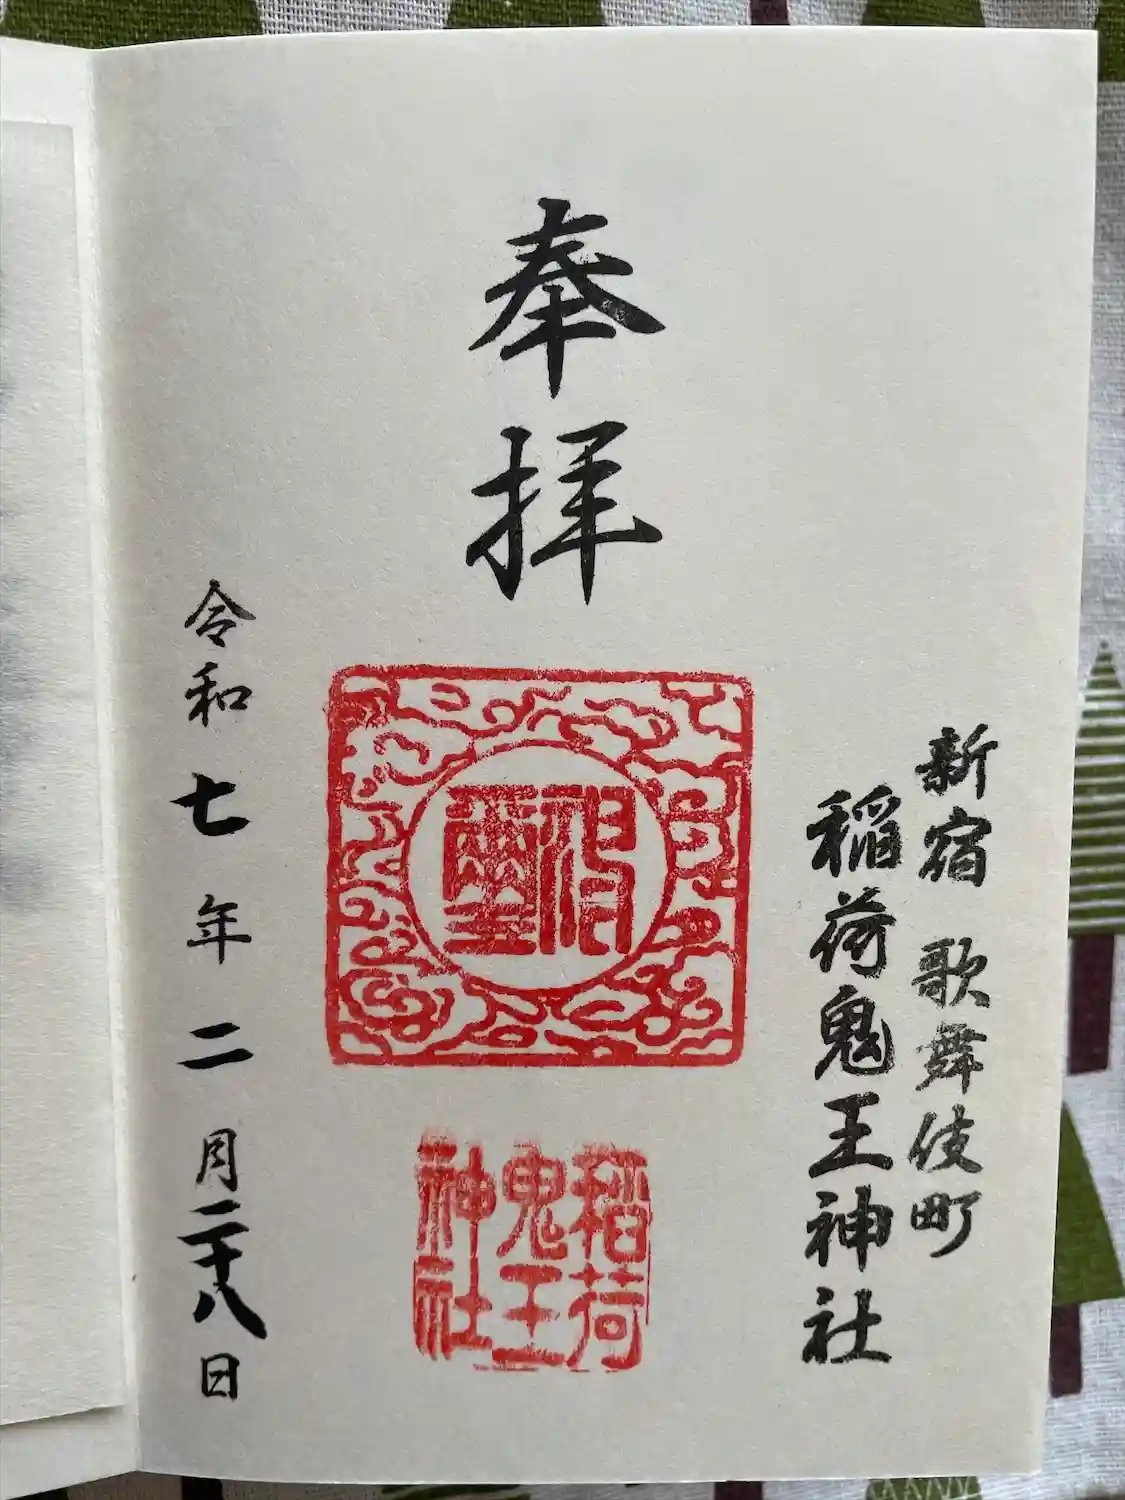 新宿 歌舞伎町
稲荷鬼王神社
奉拝
稲荷
鬼王
神社
令和七年二月二十八日